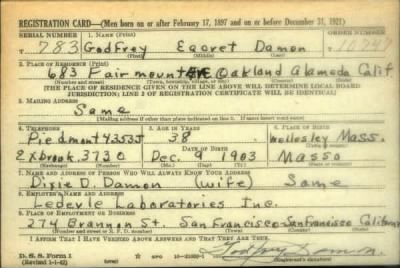 REGISTRATION CARD—(Men born on or after February 17, 1897 and on or before December 31, 1921)
SERIAL NUMBER 1. NAME (Print) ORDER NUMBER
783 Godfrey Egoret Damon
(First) (Middle) (Last)
2. PLACE OF RESIDENCE (Print)
683 Fairmount Ave Oakland Alameda Calif.
(Number and street) (Town, township, village, or city) (County) (State)
[THE PLACE OF RESIDENCE GIVEN ON THE LINE ABOVE WILL DETERMINE LOCAL BOARD
JURISDICTION; LINE 2 OF REGISTRATION CERTIFICATE WILL BE IDENTICAL]
3. MAILING ADDRESS
Same
[Mailing address if other than place indicated on line 2. If same insert word same]
4. TELEPHONE 5. AGE IN YEARS 6. PLACE OF BIRTH
Piedmont 4353J 38 Wellesley Mass.
DATE OF BIRTH
Exbrook 3730 Dec. 9 1903 Mass
(Exchange) (Number) (Mo.) (Day) (Yr.) (State or country)
7. NAME AND ADDRESS OF PERSON WHO WILL ALWAYS KNOW YOUR ADDRESS
Dixie D. Damon (wife) Same
8. EMPLOYER'S NAME AND ADDRESS
Lederle Laboratories Inc.
9. PLACE OF EMPLOYMENT OR BUSINESS
274 Brannon St. San Francisco San Francisco California
(Number and street or R. F. D. number) (Town) (County) (State)
I AFFIRM THAT I HAVE VERIFIED ABOVE ANSWERS AND THAT THEY ARE TRUE.
D. S. S. Form 1
(Revised 1-1-42) (over) GPO Godfrey Damon
(Registrant's signature)